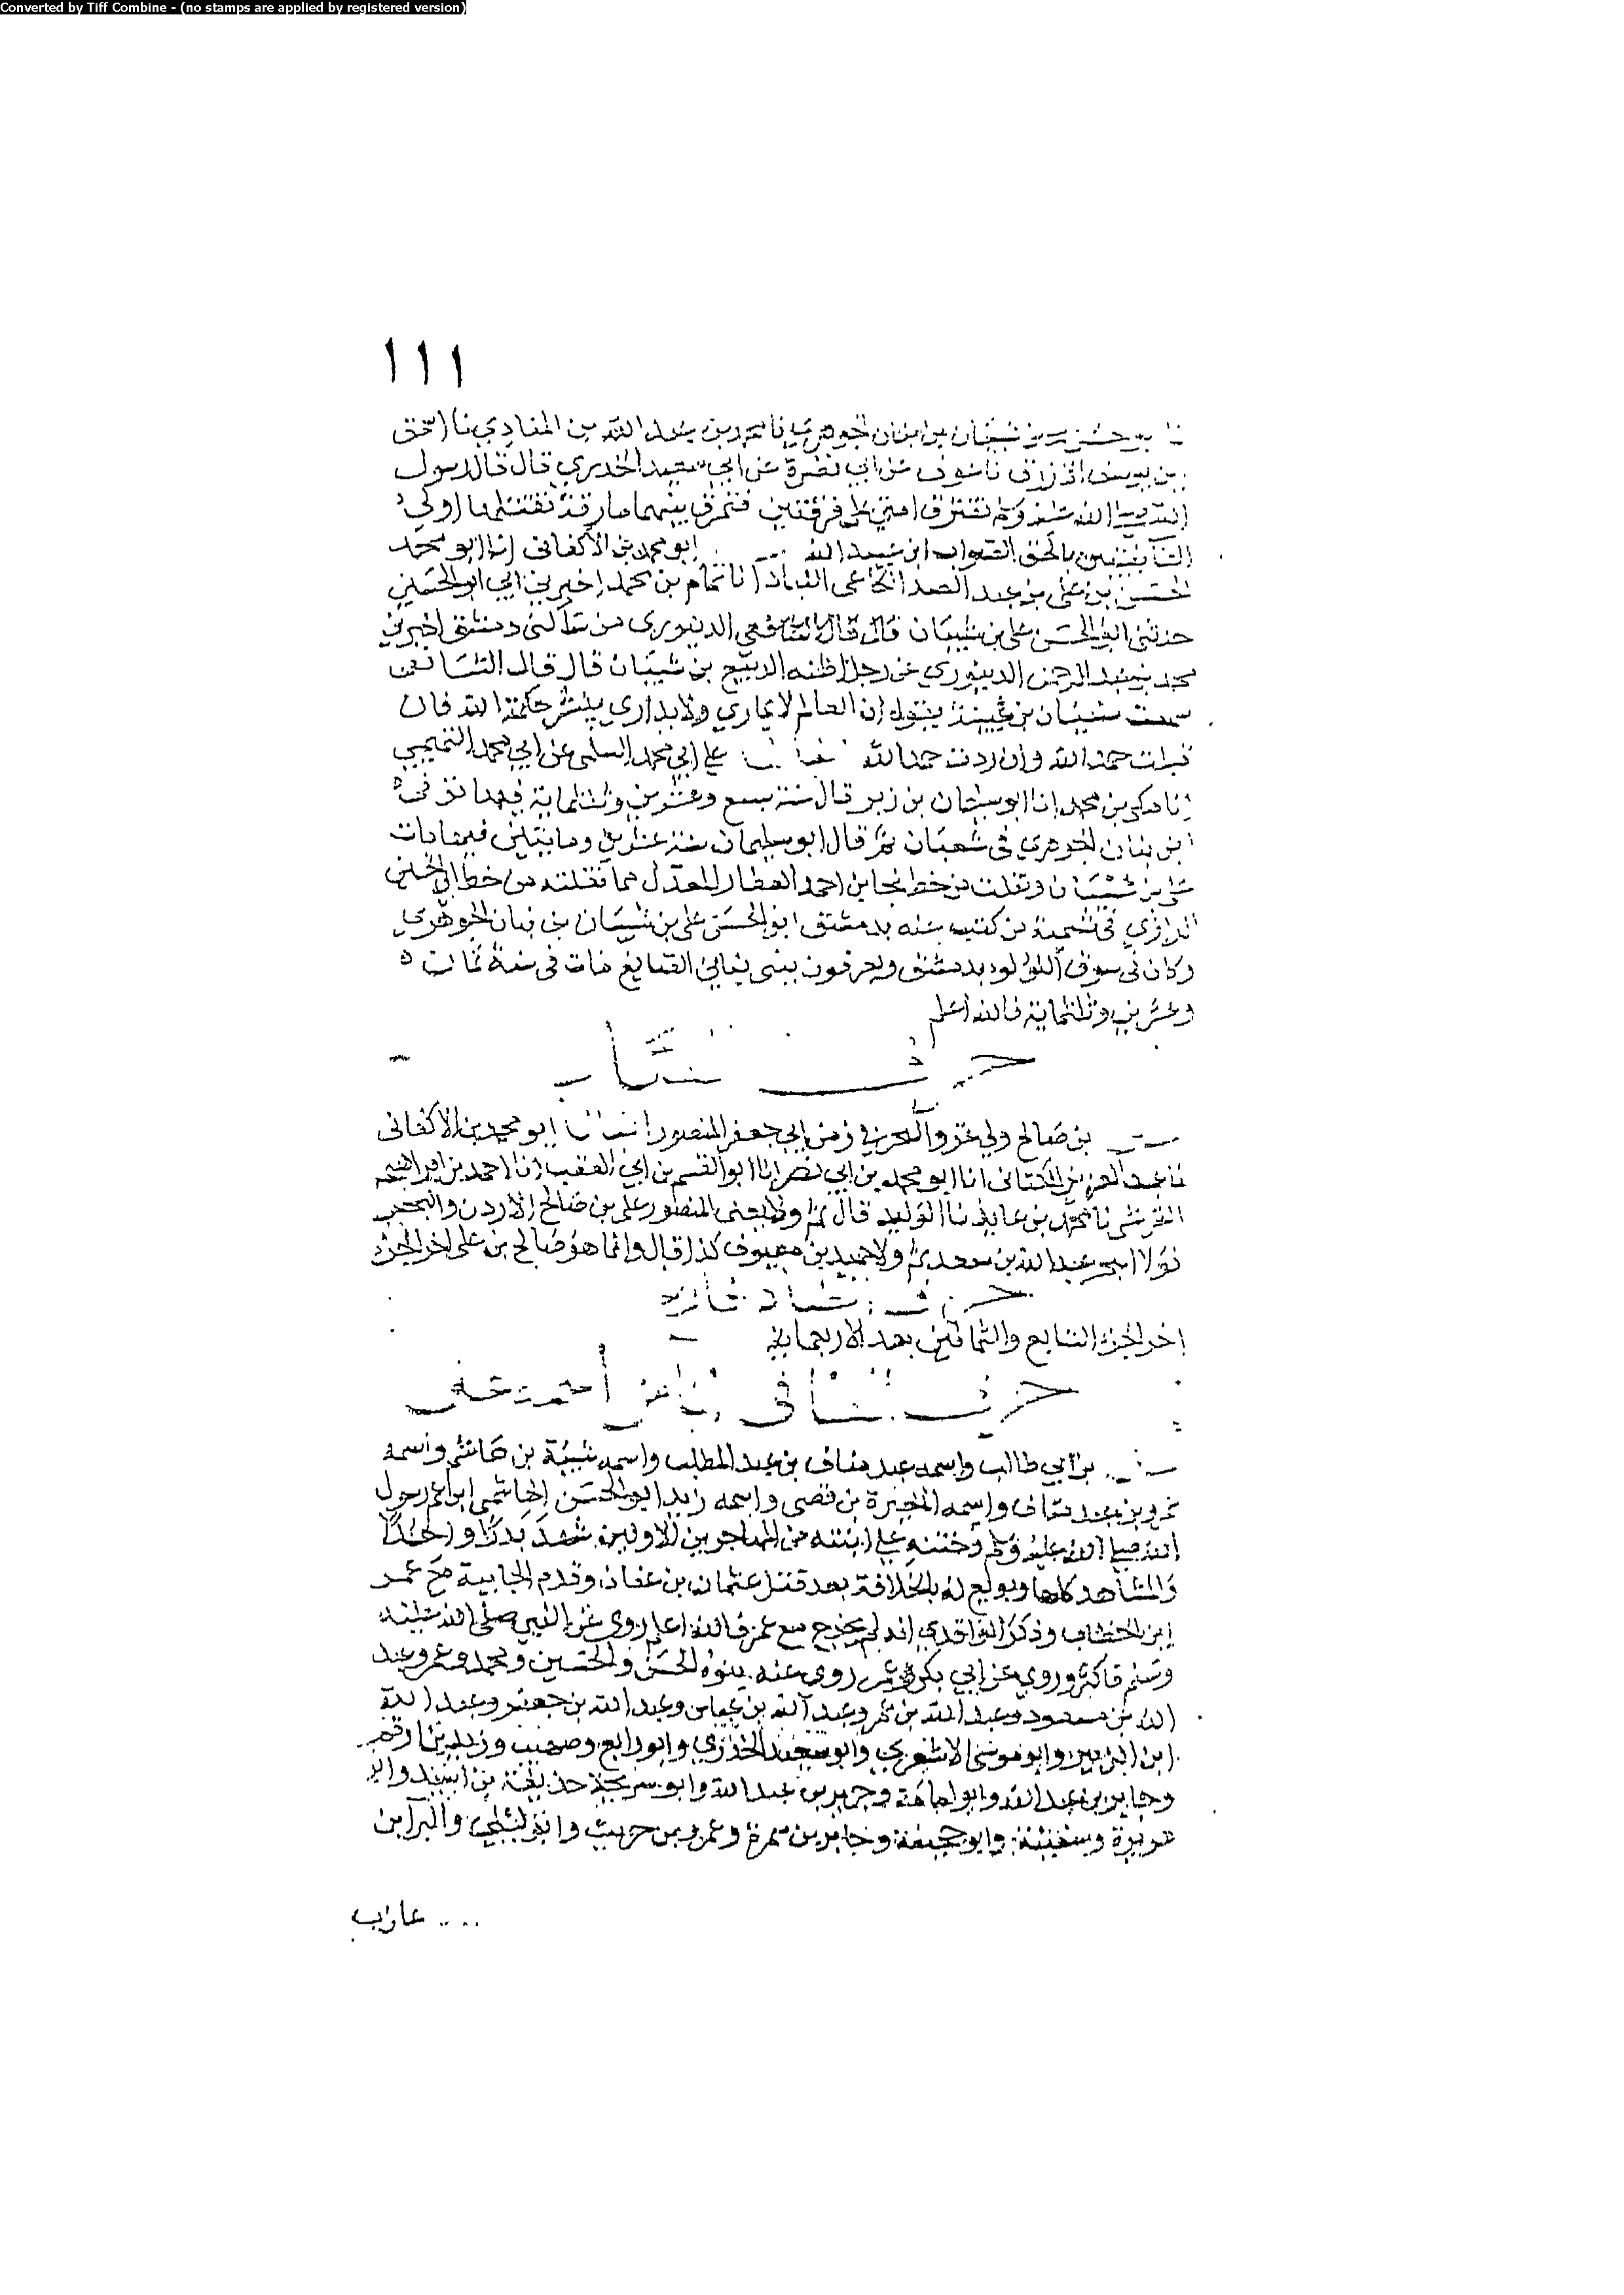 Converted by Tiff Combine - (no stamps are applied by registered version)
١١١
بن شيبان بن بنان الجوهري نا محمد بن عبيد الله بن المنادي نا اسحق
بن يوسف الازرق نا عوف عن ابي نضرة عن ابي سعيد الخدري قال قال رسول
الله صلى الله عليه وسلم تفترق امتي على فرقتين فتمرق بينهما مارقة تقتلها اولى
الطائفتين بالحق الصواب ابن عبيد الله ابو محمد بن الاكفاني انا ابو محمد
الحسن بن علي بن عبد الصمد الكلاعي اللباد انا تمام بن محمد اخبرني ابي ابو الحسين
حدثني ابو الحسن علي بن شيبان قال قال الدينوري من ساكني دمشق اخبرني
محمد بن عبد الرحمن الدينوري عن رجل اظنه الربيع بن شيبان قال قال الشافعي
سمعت سفيان بن عيينة يقول ان العالم لا يماري ولا يداري ينشر حكمة الله فان
قبلت حمد الله وان ردت حمد الله على ابي محمد السلمي عن ابي محمد التميمي
انا مكي بن محمد انا ابو سليمان بن زبر قال سنة تسع وعشرين وثلثماية فيها توفي
ابن بنان الجوهري في شعبان ثم قال ابو سليمان سنة عشرين ومايتين فيها مات
علي بن شيبان ونقلت من خط نجا بن احمد العطار المعدل مما نقلته من خط ابي الحسين
الرازي في تسمية من كتب عنه بدمشق ابو الحسن علي بن شيبان بن بنان الجوهري
وكان في سوق اللؤلؤ بدمشق ويعرفون ببني الصايغ مات في سنة ثمان
وعشرين وثلثماية فالله اعلم
حرف
بن صالح ولي غزو البحر في زمن ابي جعفر المنصور ابو محمد بن الاكفاني
نا عبد العزيز الكتاني انا ابو محمد بن ابي نصر انا ابو القسم بن ابي العقب انا احمد بن ابراهيم
القرشي نا محمد بن عايذ نا الوليد قال ثم ولى يعني المنصور علي بن صالح الاردن والبحر
عبد الله بن سعد ثم ولا حميد بن معيوف كذا قال وانما هو صالح بن علي اخر الجزء
حرف
اخر الجزء السابع والثمانين بعد الاربعماية
حرف
بن ابي طالب واسمه عبد مناف بن عبد المطلب واسمه شيبة بن هاشم واسمه
عمرو بن عبد مناف واسمه المغيرة بن قصي واسمه زيد ابو الحسن الهاشمي ابن عم رسول
الله صلى الله عليه وسلم وختنه على ابنته من المهاجرين الاولين شهد بدرا واحدا
والمشاهد كلها وبويع له بالخلافة بعد قتل عثمان بن عفان وقدم الجابية مع عمر
ابن الخطاب وذكر الواقدي انه لم يخرج مع عمر فالله اعلم روى عن النبي صلى الله عليه
وسلم فاكثر وروى عن ابي بكر وعمر روى عنه بنوه الحسن والحسين ومحمد وعمر وعبد
الله بن مسعود وعبد الله بن عمر وعبد الله بن عباس وعبد الله بن جعفر وعبد الله
ابن الزبير وابو موسى الاشعري وابو سعيد الخدري وابو رافع وصهيب وزيد بن ارقم
وجابر بن عبد الله وابو امامة وجرير بن عبد الله وابو سريحة حذيفة بن اسيد وابو
هريرة وسفينة وابو جحيفة وجابر بن سمرة وعمرو بن حريث وابو ليلى والبرا بن
عازب